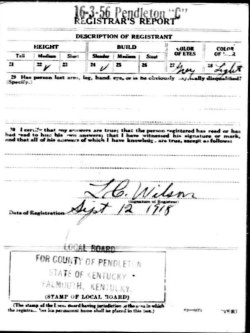 16-3-56 Pendleton "C"
REGISTRAR'S REPORT
DESCRIPTION OF REGISTRANT
HEIGHT BUILD COLOR OF EYES COLOR OF
Tall Medium Short Slender Medium Stout
21 22 ✓ 23 24 ✓ 25 26 27 Grey 28 Light
29 Has person lost arm, leg, hand, eye, or is he obviously physically disqualified?
(Specify.)
30 I certify that my answers are true; that the person registered has read or has
had read to him his own answers; that I have witnessed his signature or mark,
and that all of his answers of which I have knowledge are true, except as follows:
L. C. Wilson
(Signature of Registrar)
Date of Registration Sept 12 1918
LOCAL BOARD
FOR COUNTY OF PENDLETON
STATE OF KENTUCKY
FALMOUTH, KENTUCKY.
(STAMP OF LOCAL BOARD)
(The stamp of the Local Board having jurisdiction of the area in which
the registrant has his permanent home shall be placed in this box.)